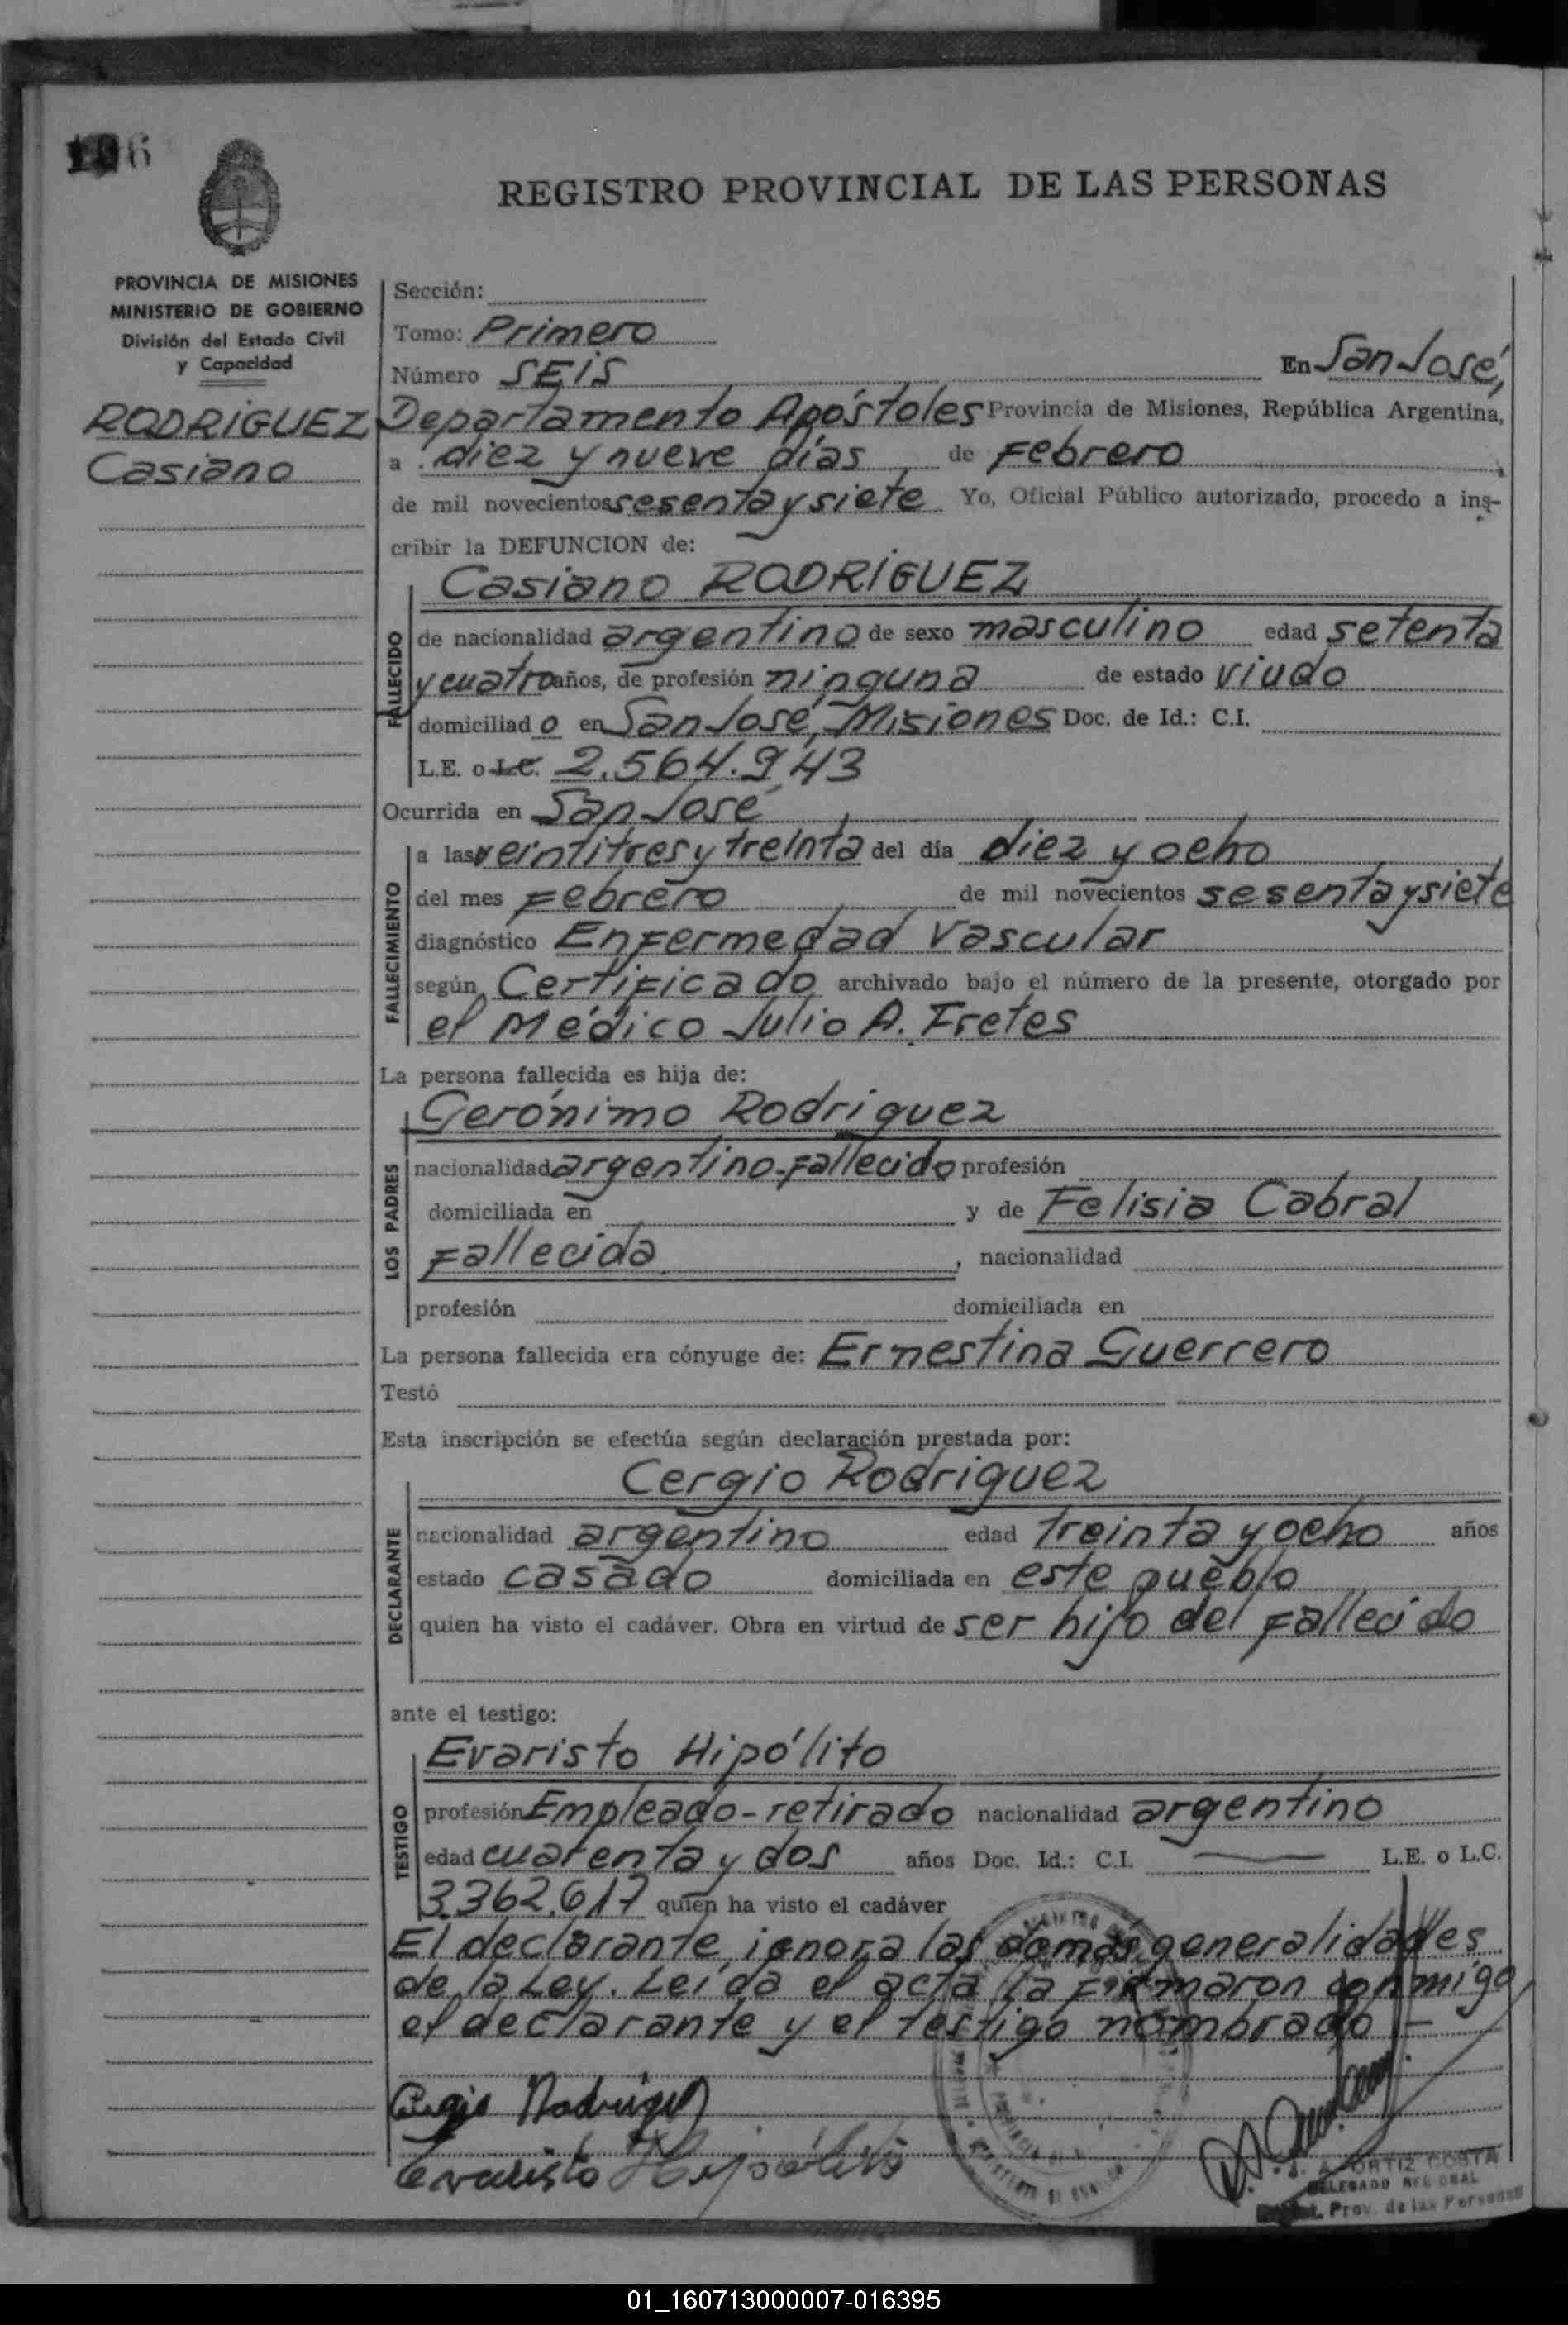 6
REGISTRO PROVINCIAL DE LAS PERSONAS
PROVINCIA DE MISIONES
MINISTERIO DE GOBIERNO
División del Estado Civil
y Capacidad
RODRÍGUEZ
Casiano
Sección:
Tomo: Primero
Número SEIS En San José,
Departamento Apóstoles Provincia de Misiones, República Argentina,
a diez y nueve días de Febrero
de mil novecientos sesenta y siete. Yo, Oficial Público autorizado, procedo a ins-
cribir la DEFUNCION de:
Casiano RODRÍGUEZ
FALLECIDO
de nacionalidad argentino de sexo masculino edad setenta
y cuatro años, de profesión ninguna de estado viudo
domiciliado en San José, Misiones Doc. de Id.: C.I.
L.E. o L.C. 2.564.943
Ocurrida en San José
FALLECIMIENTO
a las veintitres y treinta del día diez y ocho
del mes Febrero de mil novecientos sesenta y siete
diagnóstico Enfermedad Vascular
según Certificado archivado bajo el número de la presente, otorgado por
el Médico Julio A. Fretes
La persona fallecida es hija de:
Gerónimo Rodriguez
LOS PADRES
nacionalidad argentino-fallecido profesión
domiciliada en y de Felisia Cabral
Fallecida, nacionalidad
profesión domiciliada en
La persona fallecida era cónyuge de: Ernestina Guerrero
Testó
Esta inscripción se efectúa según declaración prestada por:
Cergio Rodriguez
DECLARANTE
nacionalidad argentino edad treinta y ocho años
estado casado domiciliada en este pueblo
quien ha visto el cadáver. Obra en virtud de ser hijo del fallecido
ante el testigo:
Evaristo Hipólito
TESTIGO
profesión Empleado-retirado nacionalidad argentino
edad cuarenta y dos años Doc. Id.: C.I. — L.E. o L.C.
3.362.617 quien ha visto el cadáver
El declarante ignora las demás generalidades
de la Ley. Leída el acta la firmaron conmigo
el declarante y el testigo nombrado.-
Cergio Rodriguez
Evaristo Hipólito
ORTIZ COSTA
DELEGADO REGIONAL
Prov. de las Personas
01_160713000007-016395